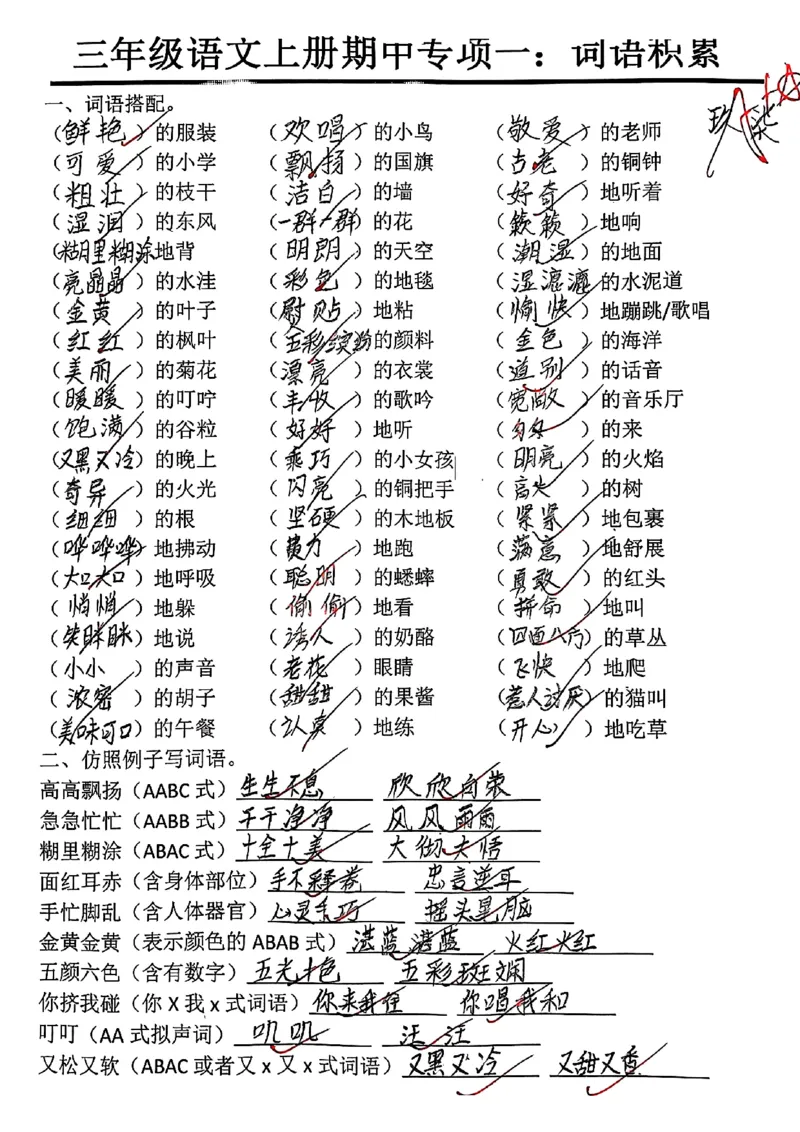 三年级语文上册期中专项一：词语积累
一、词语搭配。
（鲜艳）的服装 （欢唱）的小鸟 （敬爱）的老师
（可爱）的小学 （飘扬）的国旗 （古老）的铜钟
（粗壮）的枝干 （洁白）的墙 （好奇）地听着
（湿润）的东风 （一群一群）的花 （簌簌）地响
（糊里糊涂地背 （明朗）的天空 （潮湿）的地面
（亮晶晶）的水洼 （彩色）的地毯 （湿漉漉的水泥道
（金黄）的叶子 （尉贴）地粘 （愉快）地蹦跳/歌唱
（红红）的枫叶 （五彩缤纷的颜料 （金色）的海洋
（美丽）的菊花 （漂亮）的衣裳 （道别）的话音
（暖暖）的叮咛 （丰收）的歌吟 （宽敞）的音乐厅
（饱满）的谷粒 （好好）地听 （匆匆）的来
（又黑又冷）的晚上 （乖巧）的小女孩 （明亮）的火焰
（奇异）的火光 （闪亮）的铜把手 （高大）的树
（细细）的根 （坚硬）的木地板 （紧紧）地包裹
（哗哗哗）地拂动 （费力）地跑 （满意）地舒展
（大口大口）地呼吸 （聪明）的蟋蟀 （勇敢）的红头
（悄悄）地躲 （偷偷）地看 （拼命）地叫
（笑眯眯）地说 （诱人）的奶酪 （四面八方）的草丛
（小小）的声音 （老花）眼睛 （飞快）地爬
（浓密）的胡子 （甜甜）的果酱 （惹人讨厌）的猫叫
（美味可口）的午餐 （认真）地练 （开心）地吃草
二、仿照例子写词语。
高高飘扬（AABC 式）生生不息 欣欣向荣
急急忙忙（AABB 式）干干净净 风风雨雨
糊里糊涂（ABAC 式）十全十美 大彻大悟
面红耳赤（含身体部位）手不释卷 忠言逆耳
手忙脚乱（含人体器官）心灵手巧 摇头晃脑
金黄金黄（表示颜色的 ABAB 式）湛蓝湛蓝 火红火红
五颜六色（含有数字）五光十色 五彩斑斓
你挤我碰（你 X 我 x 式词语）你来我往 你唱我和
叮叮（AA 式拟声词）叽叽 汪汪
又松又软（ABAC 或者又 x 又 x 式词语）又黑又冷 又甜又香